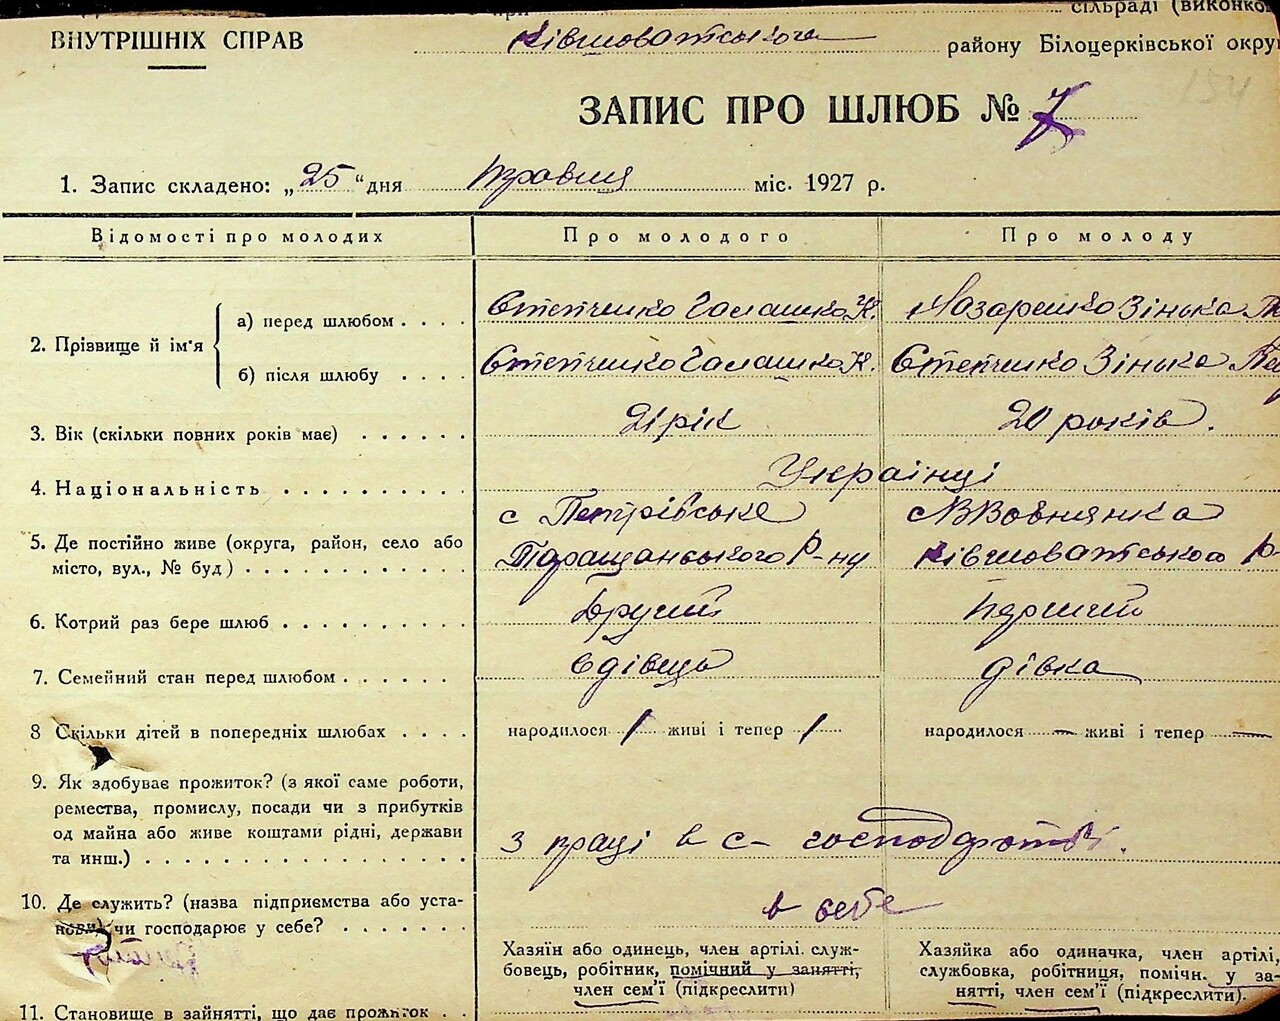 сільраді (виконко
ВНУТРІШНІХ СПРАВ
Ківшоватського району Білоцерківської окру
154
ЗАПИС ПРО ШЛЮБ № 7
1. Запис складено: „25“ дня травня міс. 1927 р.
Відомості про молодих Про молодого Про молоду
2. Пріввище й ім'я
а) перед шлюбом . . . . Степченко Галашко К. Лазаренко Зінька
б) після шлюбу . . . . Степченко Галашко К. Степченко Зінька
3. Вік (скільки повних років має) . . . . . . 21 рік 20 років.
4. Національність . . . . . . . . . . Українці
5. Де постійно живе (округа, район, село або с Петрівське с ВВовнянка
місто, вул., № буд) . . . . . . . . . . . Таращанського р-ну Ківшоватського р-
6. Котрий раз бере шлюб . . . . . . . . . . Другий Перший
7. Семейний стан перед шлюбом . . . . . . вдівець дівка
8 Скільки дітей в попередніх шлюбах . . . . народилося 1 живі і тепер 1 народилося — живі і тепер —
9. Як здобуває прожиток? (з якої саме роботи,
ремества, промислу, посади чи з прибутків
од майна або живе коштами рідні, держави
та инш.) . . . . . . . . . . . . . . . . . з праці в с-господарстві.
10. Де служить? (назва підприємства або уста-
нови) чи господарює у себе? . . . . . . . в себе
Хазяїн або одинець, член артілі. служ-
бовець, робітник, помічний у занятті,
член сем'ї (підкреслити)
Хазяйка або одиначка, член артілі,
службовка, робітниця, помічн. у за-
нятті, член сем'ї (підкреслити).
11. Становище в зайнятті, що дає прожиток . .